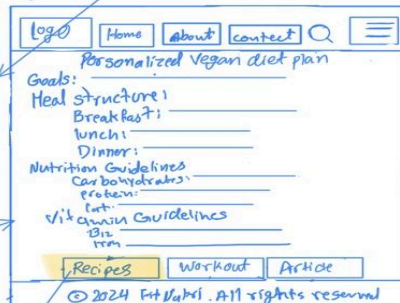 Logo Home About contect
Personalized Vegan diet plan
Goals:
Meal structure:
Breakfast:
lunch:
Dinner:
Nutrition Guidelines
Carbohydrates:
protein:
Fat:
vitamin Guidelines
B12
Iron
Recipes Workout Article
© 2024 FitNutri. All rights reserved